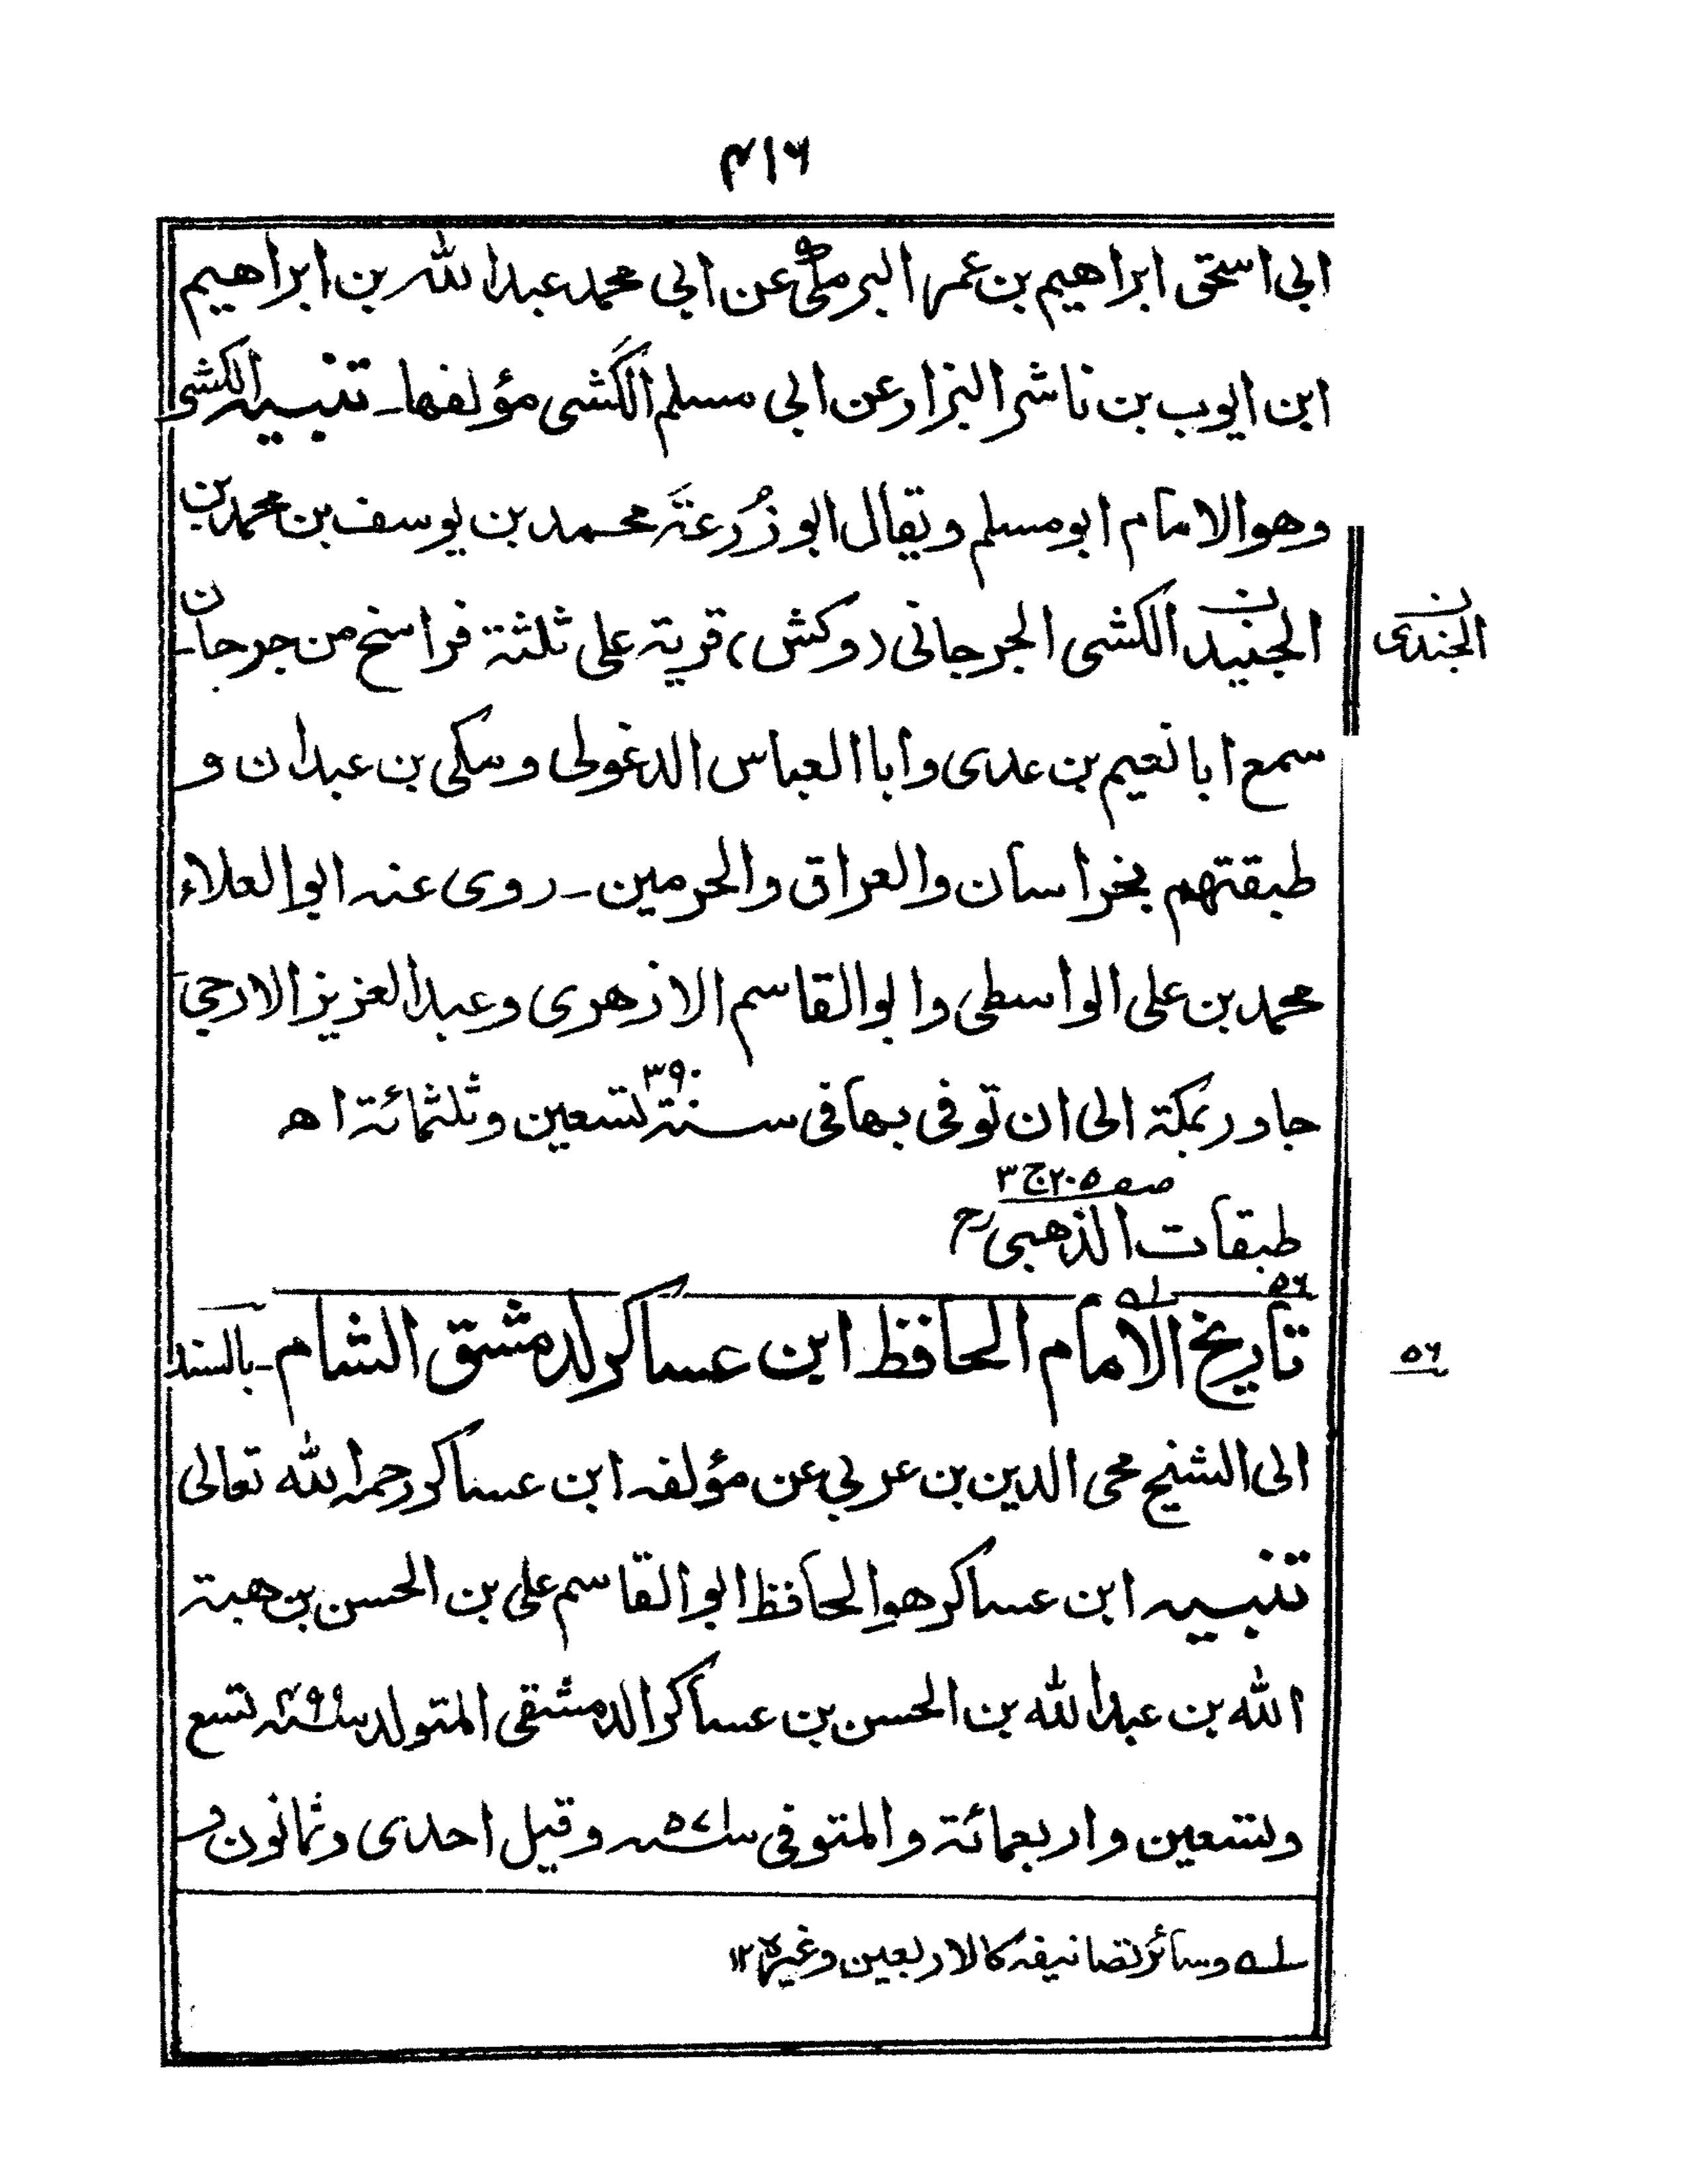 ۴۱۶
ابی اسحٰق ابراهیم بن عمر البرمکی عن ابی محمد عبد الله بن ابراهیم
ابن ایوب بن ناشر البزار عن ابی مسلم الکَشی مؤلفها۔ تنبیه الکشی
وهو الامام ابو مسلم ویقال ابو زُرعَة محمد بن یوسف بن محمد بن
الجنید الکشی الجرجانی (وکش) قریة علی ثلثة فراسخ من جرجان۔
الجندی
سمع ابا نعیم بن عدی وابا العباس الدغولی ومکی بن عبدان و
طبقتهم بخراسان والعراق والحرمین۔ روی عنه ابو العلاء
محمد بن علی الواسطی وابو القاسم الازهری وعبد العزیز الازجی
جاور بمکة الی ان توفی بها فی سنة ۳۹۰ تسعین وثلثمائة اھ
صفہ ۲۰۵ ج ۳
طبقات الذهبیؒ
۵۶
تاریخ الامام الحافظ ابن عساکر لدمشق الشام۔ بالسند
۵۶
الی الشیخ محی الدین بن عربی عن مؤلفه ابن عساکر رحمه الله تعالی
تنبیه ابن عساکر هو الحافظ ابو القاسم علی بن الحسن بن هبة
الله بن عبد الله بن الحسن بن عساکر الدمشقی المتولد سنة ۴۹۹ تسع
وتسعین واربعمائة والمتوفی سنة ۵۷۱ وقیل احدی وثمانون و
لـه وسائر تصانیفه کالاربعین وغیرہ ۱۲